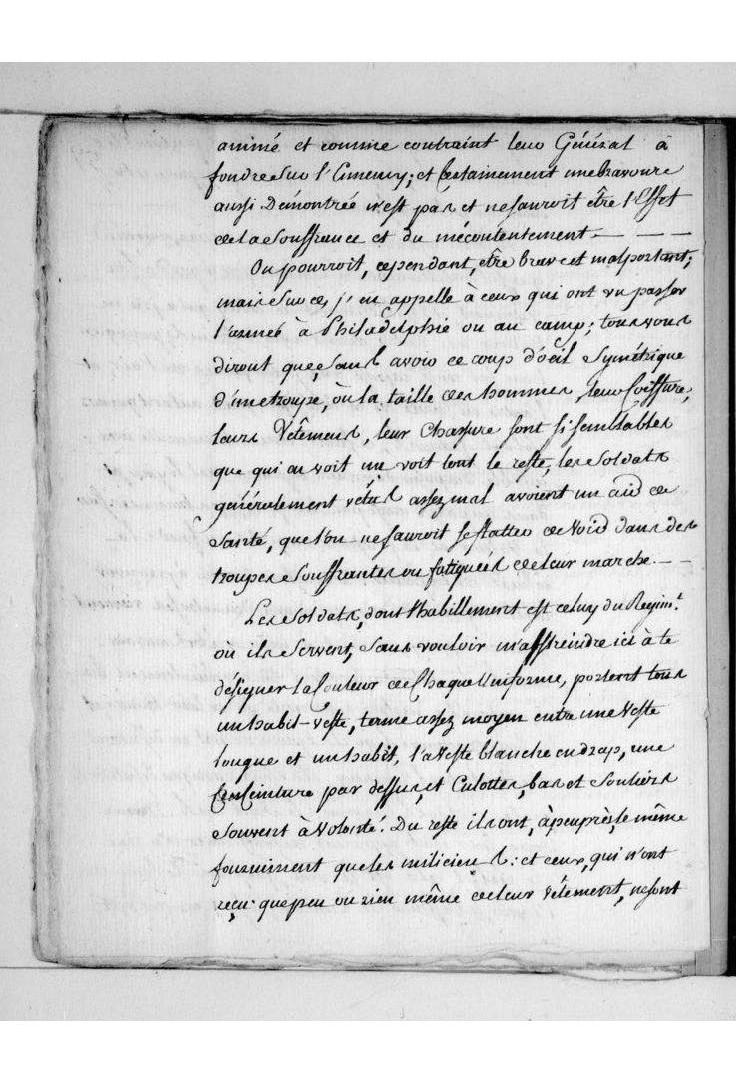 animé et comme contraint leur Général à
fondre sur l'Ennemy; et Certainement une bravoure
aussi Démontrée n'est pas et ne sauroit être l'Effet
de la Souffrance et du mécontentement. — — —
On pourroit, cependant, être brave et mal portant;
mais sur ce, j'en appelle à ceux qui ont vu passer
l'armée à Philadelphie ou au camp; tous vous
diront que, sans avoir ce coup d'oeil Symétrique
d'une troupe, où la taille des hommes, leur Coiffure,
leurs Vêtemens, leur Chaussure sont si semblables
que qui en voit un voit tout le reste, les Soldats
généralement vétus assez mal avoient un air de
Santé, que l'on ne sauroit se flatter de voir dans des
troupes Souffrantes ou fatiguées de leur marche. — —
Les Soldats, dont l'habillement est celuy du Regim.t
où ils Servent, Sans vouloir m'asstreindre ici à te
désigner la Couleur de Chaque Uniforme, portent tous
un habit-veste, terme assez moyen entre une Veste
longue et un habit, la Veste blanche en drap, une
Ceinture par dessus, et Culottes, bas et Souliers
Souvent à Volonté. Du reste ils ont, à peu près, le même
fourniment que les miliciens: et ceux, qui n'ont
reçu que peu ou rien même de leur vêtement, ne sont